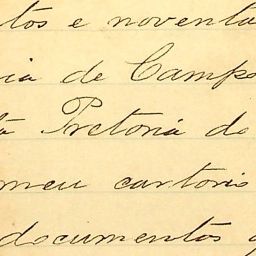 tos e noventa
ia de Campo
ta Pretoria do
meu cartorio
documentos q